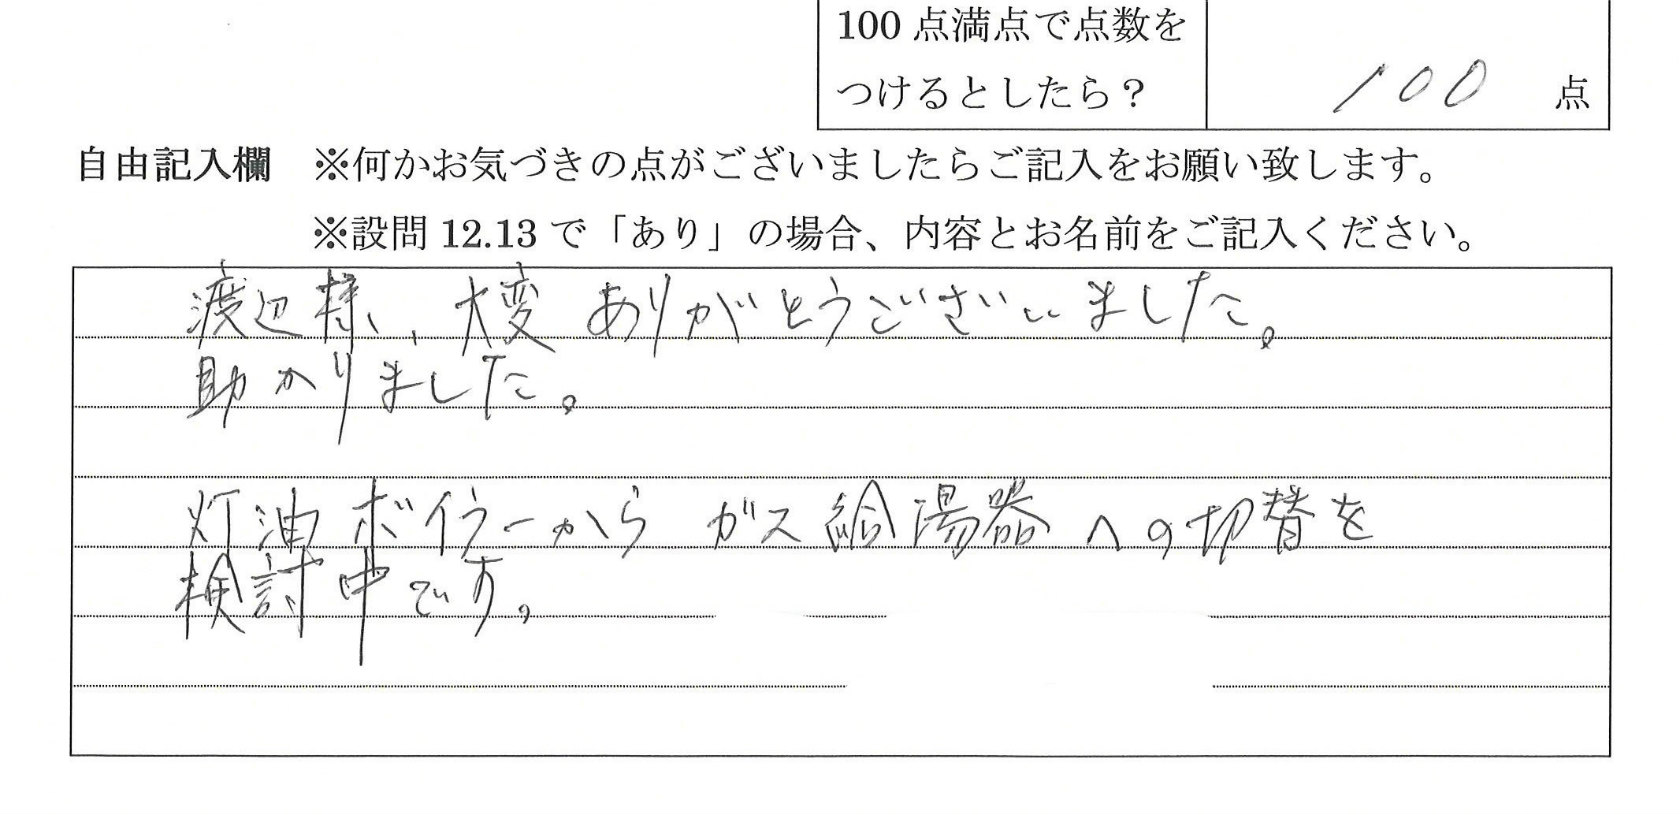 100 点満点で点数を
つけるとしたら？
100 点
自由記入欄 ※何かお気づきの点がございましたらご記入をお願い致します。
※設問 12.13 で「あり」の場合、内容とお名前をご記入ください。
渡辺様、大変ありがとうございました。
助かりました。
灯油ボイラーからガス給湯器への切替を
検討中です。